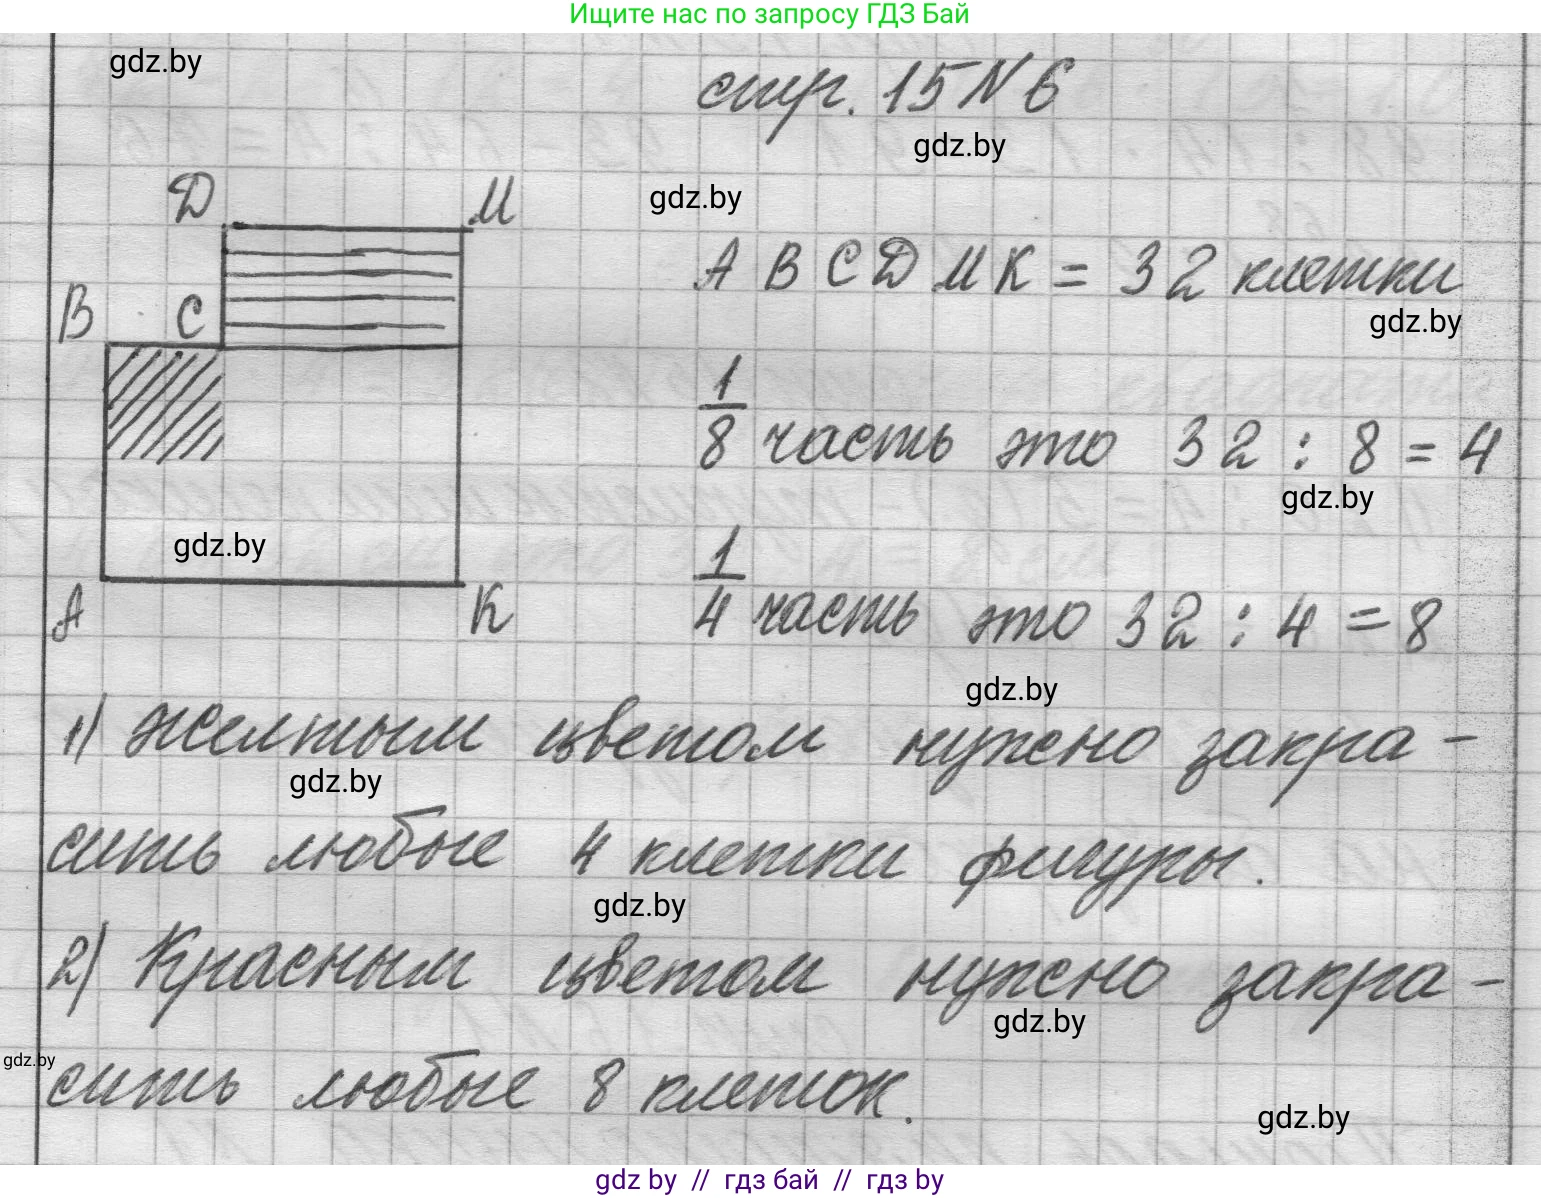 Ищите нас по запросу ГДЗ Бай
gdz.by
стр. 15 N 6
gdz.by
gdz.by
Д М
А В С Д М К = 32 клетки
В С
gdz.by
1/8 часть это 32 : 8 = 4
gdz.by
gdz.by
А К
1/4 часть это 32 : 4 = 8
gdz.by
1) Желтым цветом нужно закра-
gdz.by
сить любые 4 клетки фигуры.
gdz.by
2) Красным цветом нужно закра-
gdz.by
gdz.by
сить любые 8 клеток.
gdz.by
gdz by // гдз бай // гдз by